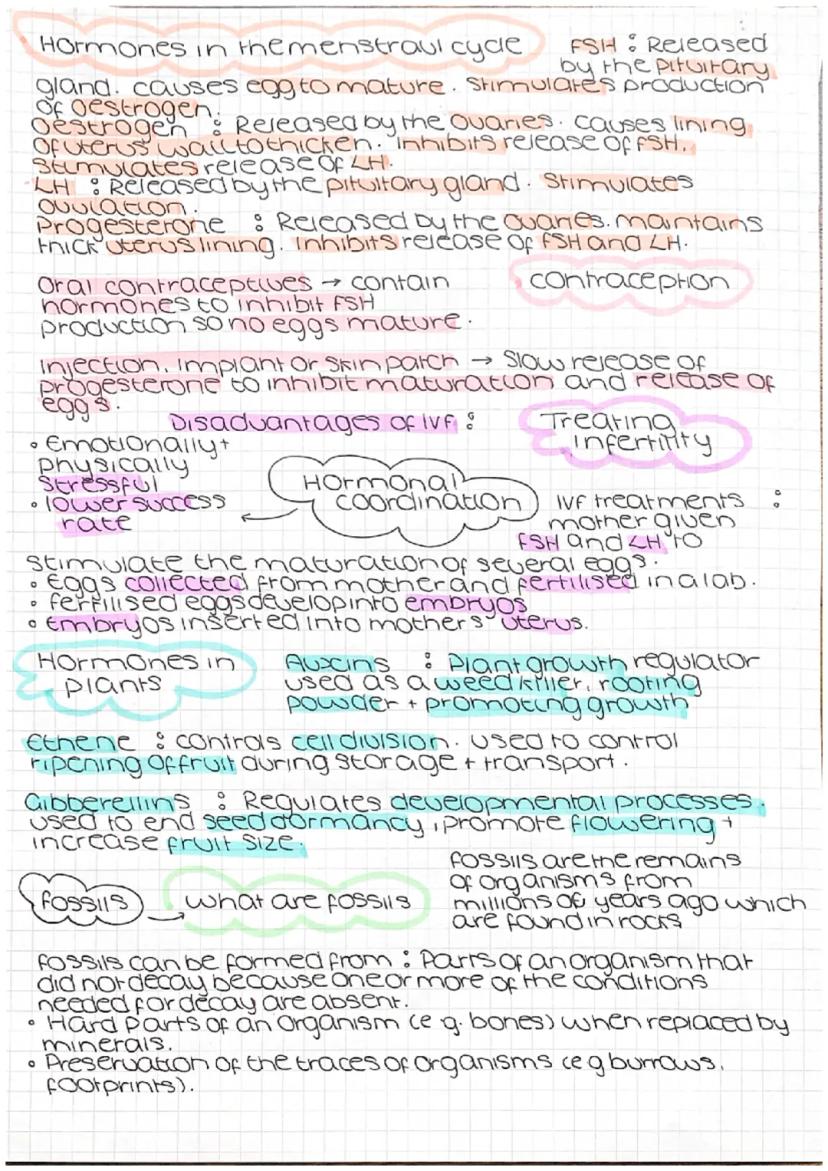 Hormones in the menstraul cycle
FSH : Released
by the pituitary
gland. causes egg to mature. Stimulates production
of oestrogen.
Oestrogen : Released by the ovaries. causes lining
of uterus wall to thicken. Inhibits release of FSH.
Stimulates release of LH.
LH : Released by the pituitary gland. Stimulates
ovulation.
Progesterone : Released by the ovaries. maintains
thick uterus lining. Inhibits release of FSH and LH.
Oral contraceptives → contain
hormones to inhibit FSH
production so no eggs mature.
contraception
injection, implant or skin patch → Slow release of
progesterone to inhibit maturation and release of
eggs.
Disadvantages of IVF :
Treating
infertility
• Emotionally +
physically
stressful
• lower success
rate
Hormonal
coordination
IVF treatments :
mother given
FSH and LH to
stimulate the maturation of several eggs.
• Eggs collected from mother and fertilised in a lab.
• fertilised eggs develop into embryos
• Embryos inserted into mothers uterus.
Hormones in
plants
Auxins : Plant growth regulator
used as a weed killer, rooting
powder + promoting growth
Ethene : controls cell division. used to control
ripening of fruit during storage + transport.
Gibberellins : Regulates developmental processes.
used to end seed dormancy, promote flowering +
increase fruit size.
fossils
what are fossils
fossils are the remains
of organisms from
millions of years ago which
are found in rocks
fossils can be formed from : Parts of an organism that
did not decay because one or more of the conditions
needed for decay are absent.
• Hard parts of an organism (e g. bones) when replaced by
minerals.
• Preservation of the traces of organisms (e g burrows,
footprints).